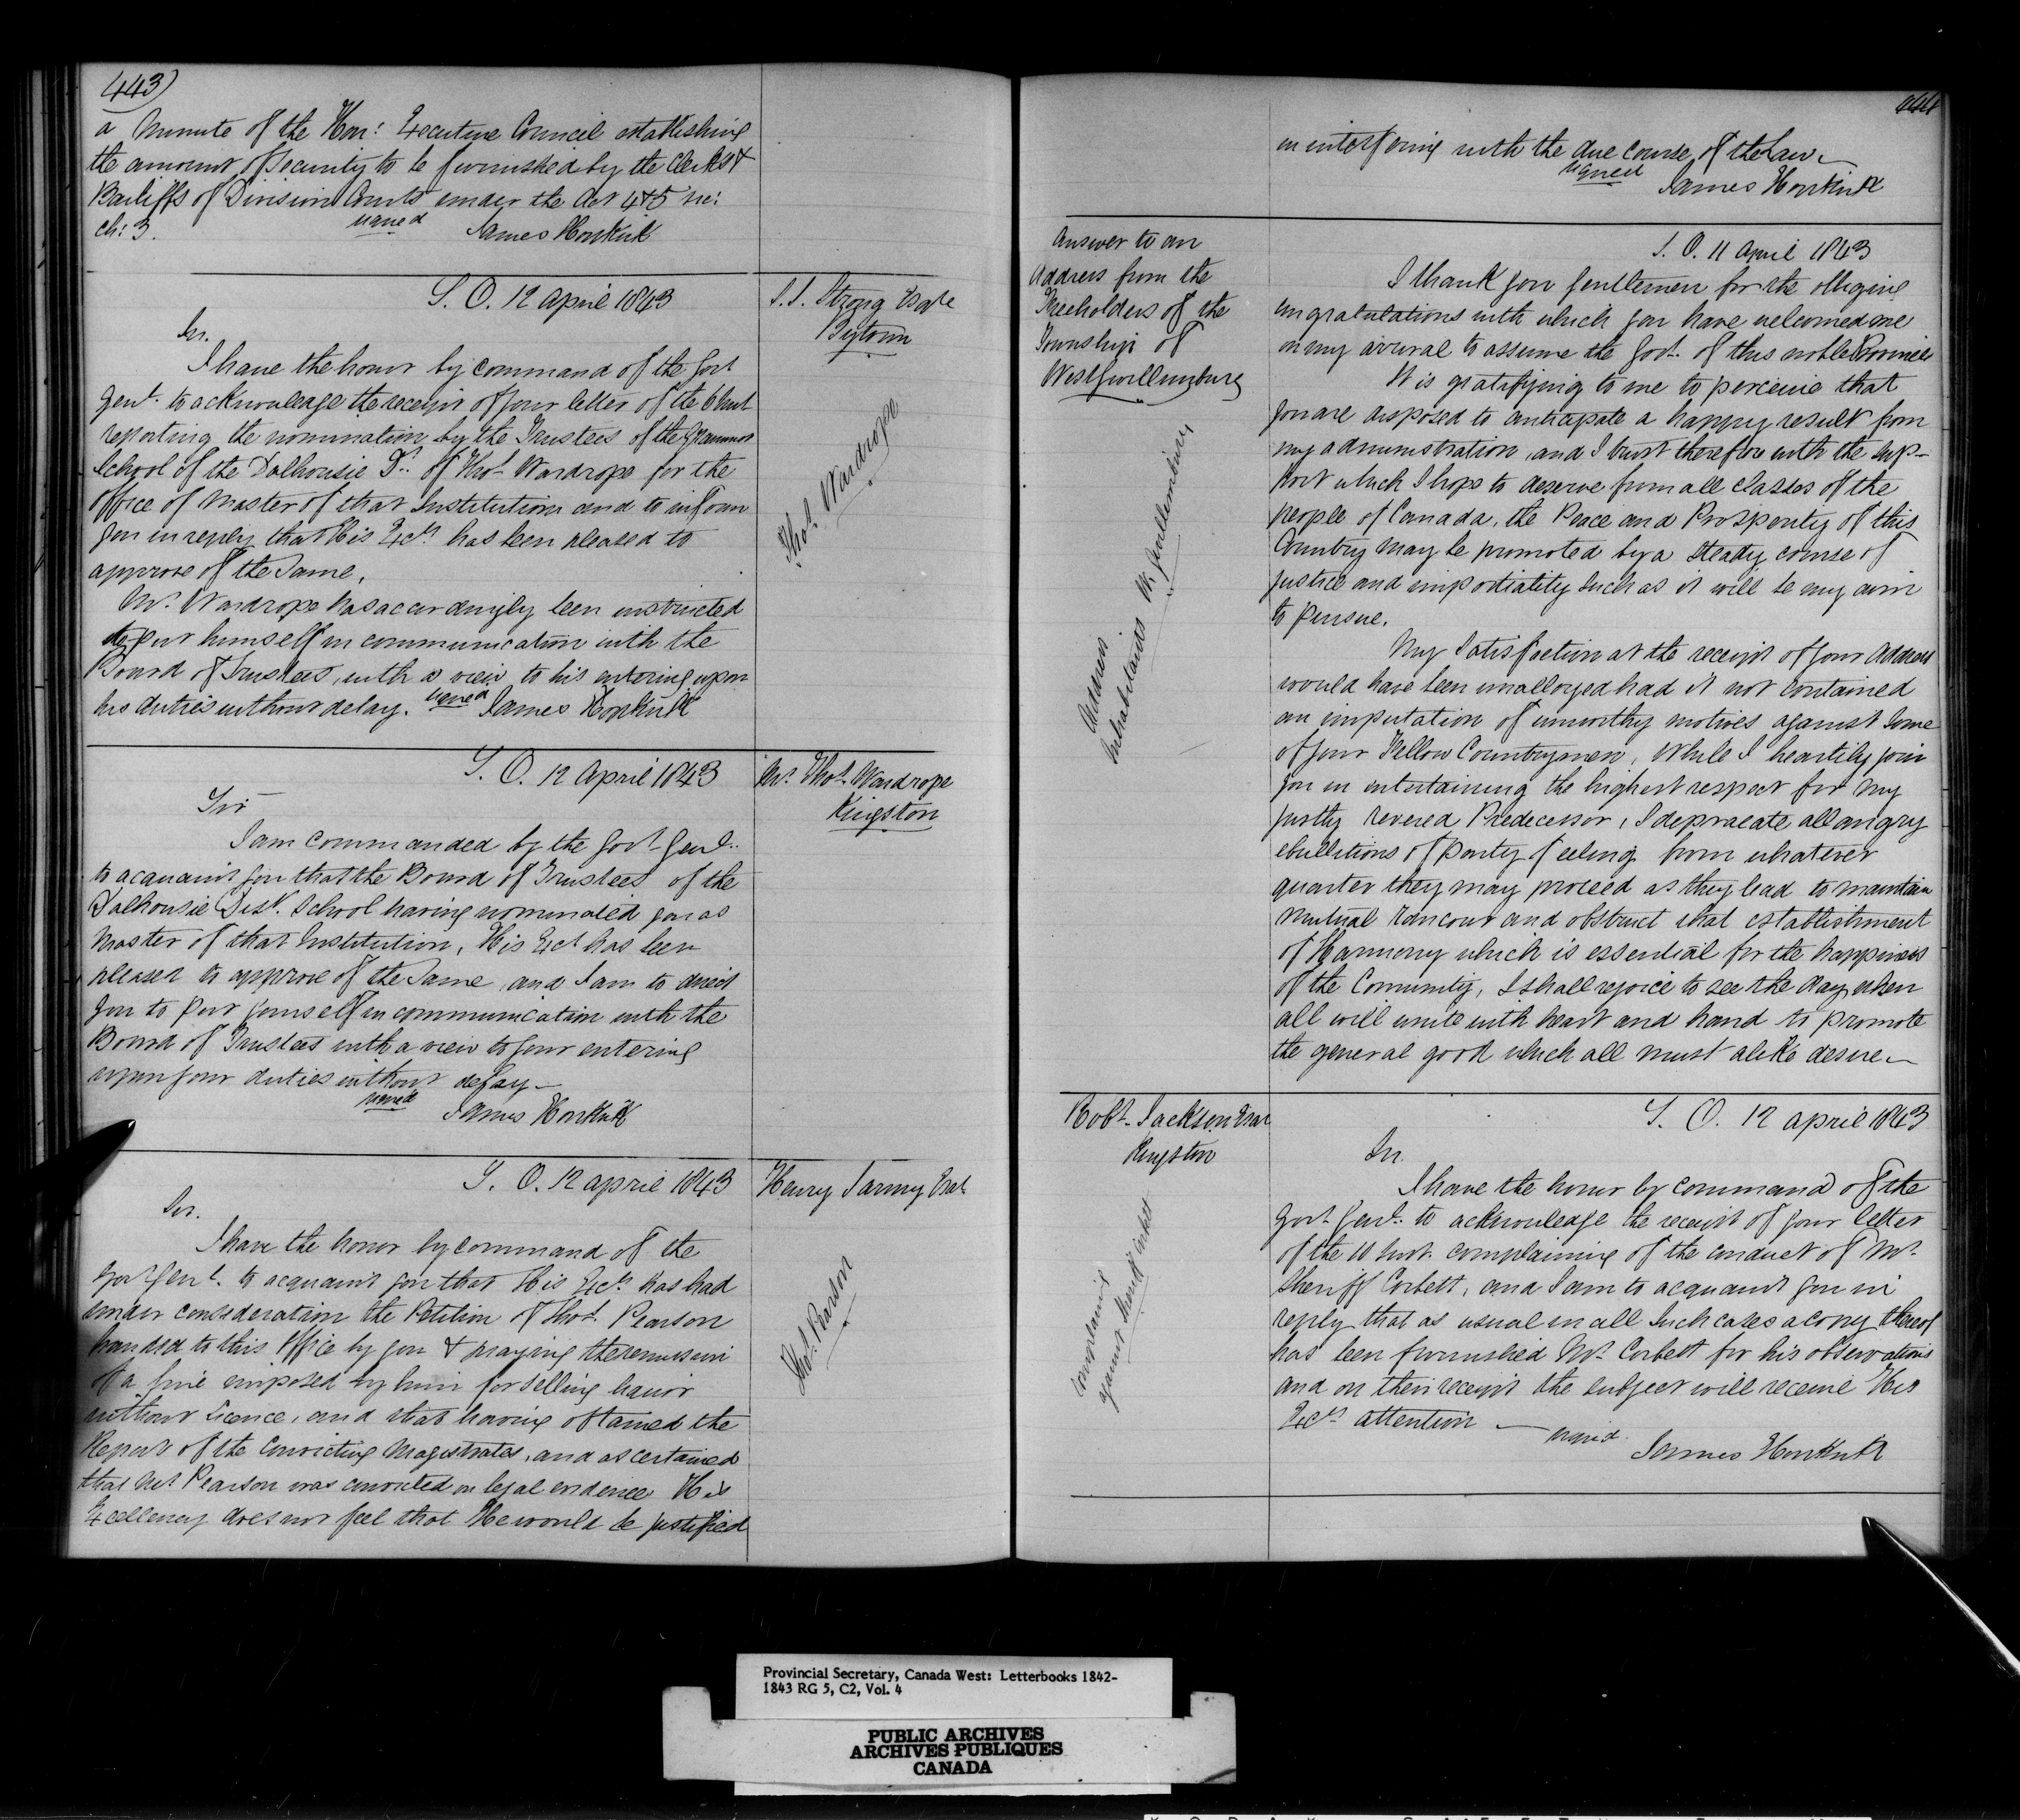 443)
a Minute of the Hon: Executive Council establishing
the amount of Security to be furnished by the Clerks &
Bailiffs of Division Courts under the Act 4 & 5 Vic:
ch: 3.
signed James Hopkirk
S. O. 12 April 1843
S. S. Strong Esqre
Bytown
Sir.
I have the honor by command of the Govr
Genl. to acknowledge the receipt of your letter of the 6 Inst
reporting the nomination by the Trustees of the Grammar
School of the Dalhousie Dt. of Thos. Wardrope for the
Office of Master of that Institution and to inform
you in reply that His Excy. has been pleased to
approve of the Same.
Mr. Wardrope has accordingly been instructed
to put himself in communication with the
Board of Trustees, with a view to his entering upon
his duties without delay. signed James Hopkirk
Thos. Wardrope
S. O. 12 April 1843
Mr. Thos. Wardrope
Kingston
Sir
I am commanded by the Govr Genl.
to acquaint you that the Board of Trustees of the
Dalhousie Dist. School having nominated you as
Master of that Institution, His Excy has been
pleased to approve of the Same, and I am to direct
you to put yourself in communication with the
Board of Trustees with a view to your entering
upon your duties without delay—
signed James Hopkirk
S. O. 12 April 1843
Henry Esqr
Sir.
I have the honor by command of the
Govr Genl. to acquaint you that His Excy. has had
under consideration the Petition of Thos. Pearson
handed to this Office by you & praying the remission
of a fine imposed by him for selling liquor
without Licence, and that having obtained the
Report of the Convicting Magistrates, and ascertained
that Mr Pearson was convicted on legal evidence His
Excellency does not feel that He would be justified
Thos. Pearson
444
in interfering with the due course of the Law—
signed
James Hopkirk
Answer to an
Address from the
Freeholders of the
Township of
West Gwillimbury
S. O. 11 April 1843
I thank you Gentlemen for the obliging
congratulations with which you have welcomed me
on my arrival to assume the Govt. of this noble Province
It is gratifying to me to perceive that
you are disposed to anticipate a happy result from
my administration, and I trust therefore with the Sup-
port which I hope to deserve from all classes of the
people of Canada, the Peace and Prosperity of this
Country may be promoted by a steady course of
justice and impartiality such as it will be my aim
to pursue.
My Satisfaction at the receipt of your Address
would have been unalloyed had it not contained
an imputation of unworthy motives against Some
of your Fellow Countrymen, While I heartily join
you in entertaining the highest respect for my
justly revered Predecessor, I deprecate all angry
ebullitions of party feeling from whatever
quarter they may proceed as they lead to maintain
mutual rancour and obstruct that establishment
of Harmony which is essential for the happiness
of the Community, I shall rejoice to see the day when
all will unite with heart and hand to promote
the general good which all must alike desire—
Address
Inhabitants W. Gwillimbury
Robt. Jackson Esqr
Kingston
S. O. 12 April 1843
Sir.
I have the honor by command of the
Govr. Genl. to acknowledge the receipt of your letter
of the 10 Inst. complaining of the conduct of Mr.
Sheriff Corbett, and I am to acquaint you in
reply that as usual in all Such cases a copy thereof
has been furnished Mr. Corbett for his observations
and on their receipt the subject will receive His
Excys attention — signed
James Hopkirk
complaining
against Sheriff Corbett
Provincial Secretary, Canada West: Letterbooks 1842-
1843 RG 5, C2, Vol. 4
PUBLIC ARCHIVES
ARCHIVES PUBLIQUES
CANADA